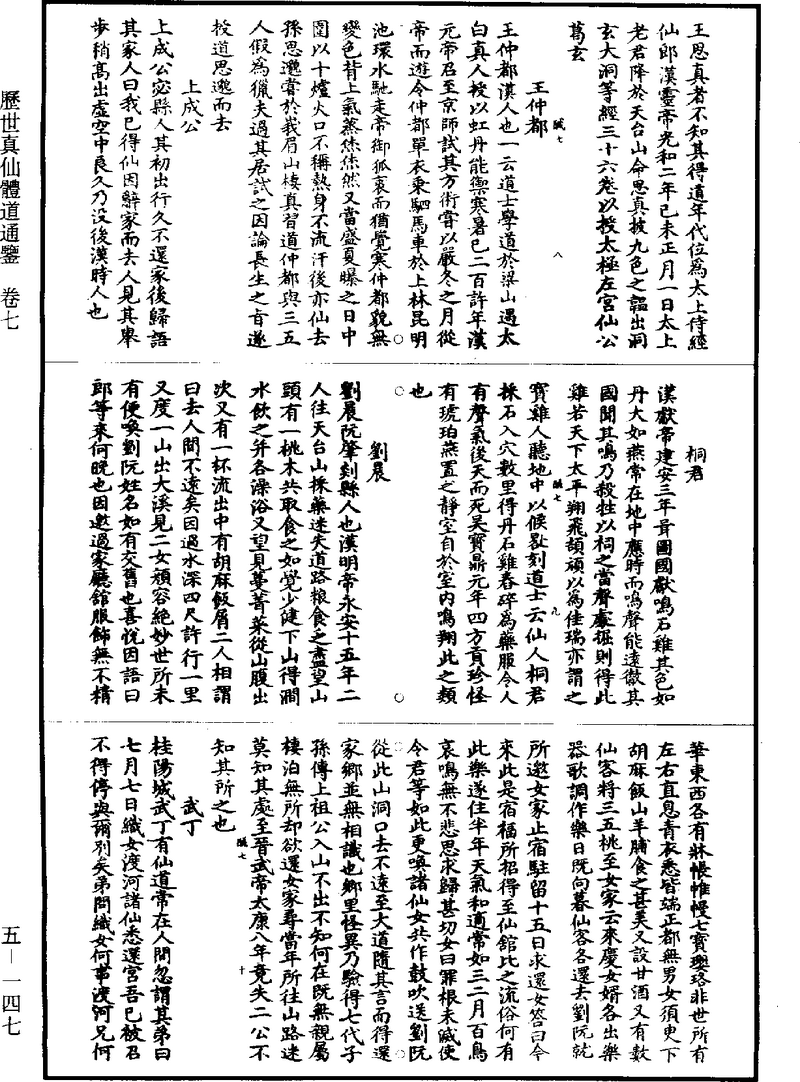 歷世真仙體道通鑒　卷七
五—一四七
王思真者不知其得道年代位為太上侍經
仙郎漢靈帝光和二年己未正月一日太上
老君降於天台山命思真披九色之韞出洞
玄大洞等經三十六卷以授太極左宮仙公
葛玄
王仲都
王仲都漢人也一云道士學道於梁山遇太
白真人授以虹丹能禦寒暑已二百許年漢
元帝召至京師試其方術嘗以嚴冬之月從
帝而遊令仲都單衣乘駟馬車於上林昆明
池環水馳走帝御狐裘而猶覺寒仲都貌無
變色背上氣蒸焦焦然又當盛夏曝之日中
圍以十爐火口不稱熱身不流汗後亦仙去
孫思邈嘗於峩眉山棲真習道仲都與三五
人假為獵夫過其居試之因論長生之旨遂
授道思邈而去
上成公
上成公宓縣人其初出行久不還家後歸語
其家人曰我已得仙因辭家而去人見其舉
步稍高出虛空中良久乃没後漢時人也
桐君
漢獻帝建安三年胥圖國獻鳴石雞其色如
丹大如燕常在地中應時而鳴聲能遠徹其
國聞其鳴乃殺牲以祠之當聲處掘則得此
雞若天下太平翔飛頡頏以為佳瑞亦謂之
寶雞人聽地中以候晷刻道士云仙人桐君
採石入穴數里得丹石雞舂碎為藥服令人
有聲氣後天而死吴寶鼎元年四方貢珍怪
有琥珀燕置之靜室自於室內鳴翔此之類
也
劉晨
劉晨阮肇剡縣人也漢明帝永安十五年二
人往天台山採藥迷失道路粮食乏盡望山
頭有一桃木共取食之如覺少健下山得澗
水飲之并各澡浴又望見蔓菁菜從山腹出
次又有一杯流出中有胡麻飯屑二人相謂
曰去人間不遠矣因過水深四尺許行一里
又度一山出大溪見二女顏容絕妙世所未
有便喚劉阮姓名如有交舊也喜悅因語曰
郎等來何晚也因邀過家廳舘服飾無不精
華東西各有牀帳帷幔七寶瓔珞非世所有
左右直息青衣悉皆端正都無男女須臾下
胡麻飯山羊脯食之甚美又設甘酒又有數
仙客將三五桃至女家云來慶女婿各出樂
器歌調作樂日既向暮仙客各還去劉阮就
所邀女家止宿駐留十五日求還女答曰今
來此是宿福所招得至仙舘比之流俗何有
此樂遂住半年天氣和適常如三二月百鳥
哀鳴無不悲思求歸甚切女曰罪根未滅使
令君等如此更喚諸仙女共作鼓吹送劉阮
從此山洞口去不遠至大道隨其言而得還
家鄉並無相識也鄉里怪異乃驗得七代子
孫傳上祖公入山不出不知何在既無親屬
棲泊無所却欲還女家尋當年所往山路迷
莫知其處至晉武帝太康八年竟失二公不
知其所之也
武丁
桂陽城武丁有仙道常在人間忽謂其弟曰
七月七日織女渡河諸仙悉還宮吾已被召
不得停與爾別矣弟問織女何事渡河兄何